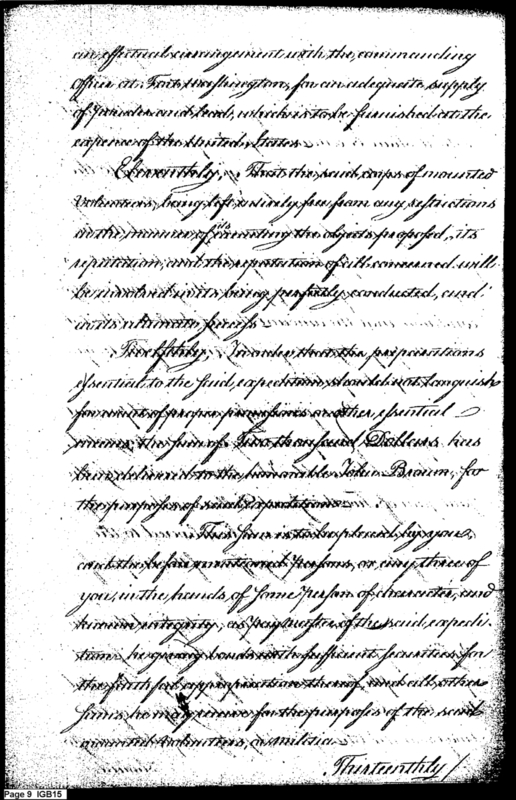 an effectual arrangement with the commanding
Officer at Fort Washington, for an adequate supply
of Powder and Lead, which is to be furnished at the
expence of the United States
Eleventhly, That the said corps of mounted
Volunteers, being left entirely free from any restrictions
in the manner of its executing the objects proposed, its
reputation, and the reputation of all concerned will
be involved in its being perfectly conducted, and
in its ultimate success
Twelfthly, In order that the preparations
essential to the said expedition should not languish
for want of proper provisions or other essential
means, the sum of Two thousand Dollars has
been delivered to the honorable John Brown, for
the purposes of said Expedition
This sum is to be placed by you,
and the before mentioned Persons, or any three of
you, in the hands of some Person of character, and
known integrity, as paymaster of the said expedi-
tion he giving bonds with sufficient securities for
the faithful appropriation thereof, and all other
sums he may receive for the purposes of the said
mounted Volunteers, or militia
Thirteenthly /
Page 9 IGB15